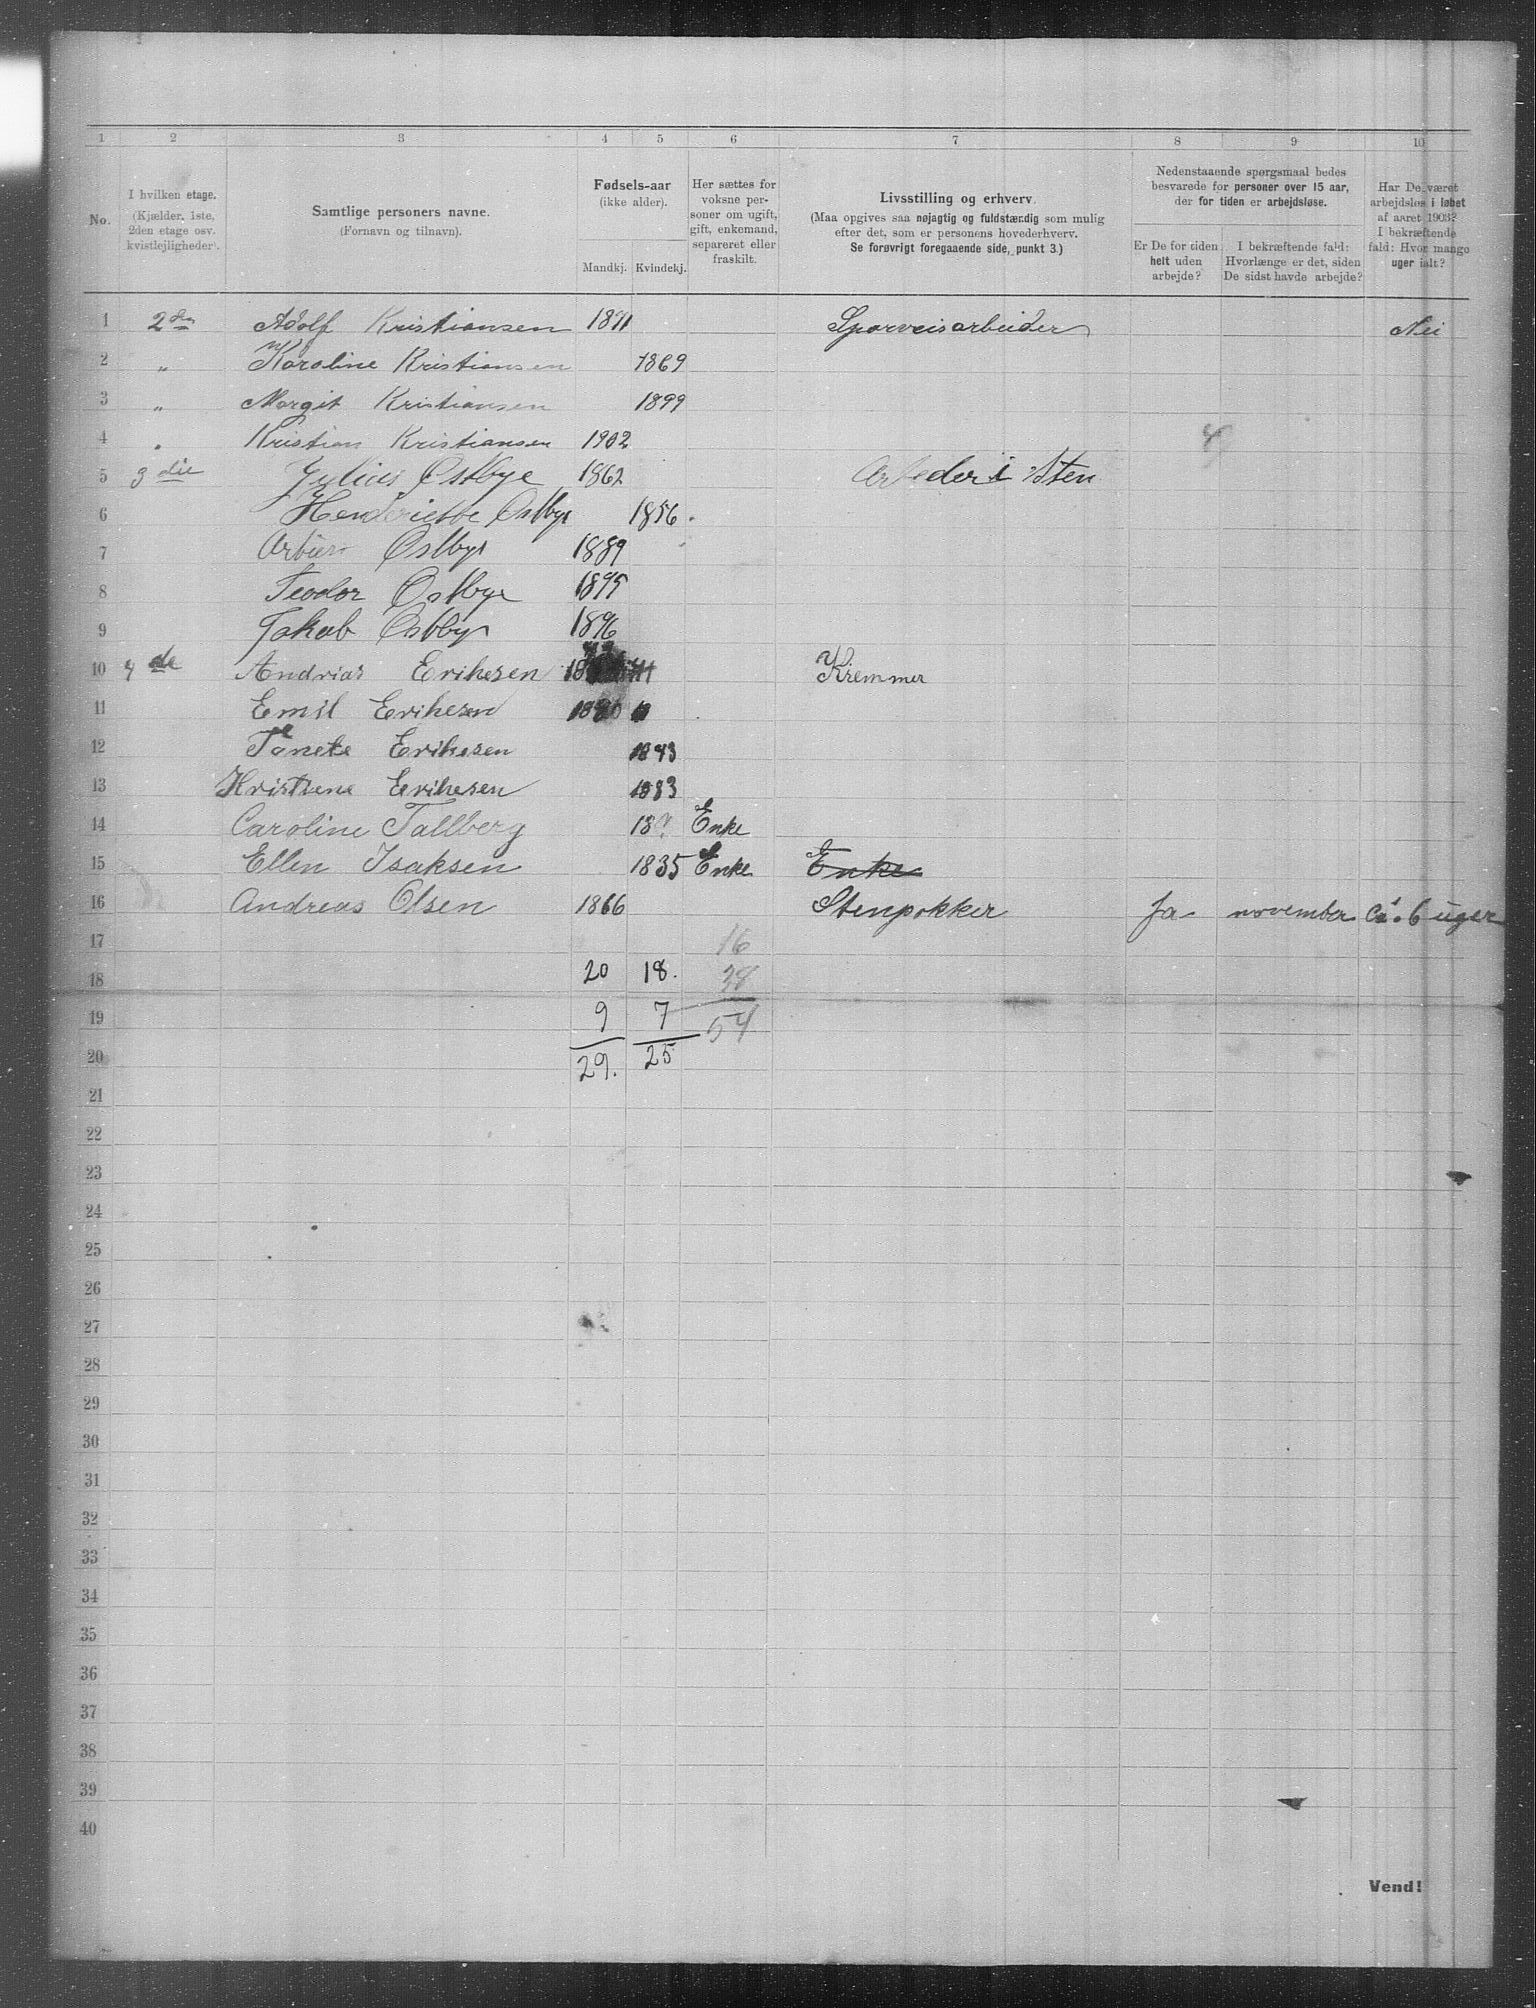 1 2 3 4 5 6 7 8 9 10
No.
I hvilken etage.
(Kjælder, 1ste,
2den etage osv.
kvistlejligheder).
Samtlige personers navne.
(Fornavn og tilnavn).
Fødsels-aar
(ikke alder).
Mandkj. Kvindekj.
Her sættes for
voksne per-
soner om ugift,
gift, enkemand,
separeret eller
fraskilt.
Livsstilling og erhverv.
(Maa opgives saa nøjagtig og fuldstændig som mulig
efter det, som er personens hovederhverv.
Se forøvrigt foregaaende side, punkt 3.)
Nedenstaaende spørgsmaal bedes
besvarede for personer over 15 aar,
der for tiden er arbejdsløse.
Er De for tiden
helt uden
arbejde?
I bekræftende fald:
Hvorlænge er det, siden
De sidst havde arbejde?
Har De været
arbejdsløs i løbet
af aaret 1903?
I bekræftende
fald: Hvor mange
uger ialt?
1 2den Adolf Kristiansen 1871 Sporveisarbeider Nei
2 " Karoline Kristiansen 1869
3 " Margit Kristiansen 1899
4 " Kristian Kristiansen 1902
5 3die Julius Østbye 1862 Arbeder i Sten
6 Henderiette Østbye 1856
7 Østbye 1889
8 Teodor Østbye 1895
9 Jakob Østbye 1896
10 4de Andrias Erikesen Kremmer
11 Emil Erikesen
12 Erikesen 1843
13 Kristiene Erikesen 1883
14 Caroline Tallberg Enke
15 Ellen Isaksen 1835 Enke Enke
16 Andreas Olsen 1866 Stenpokker Ja november Ca. 6 uger
17 16
18 20 18. 38
19 9 7 54
20 29. 25
21
22
23
24
25
26
27
28
29
30
31
32
33
34
35
36
37
38
39
40
Vend!